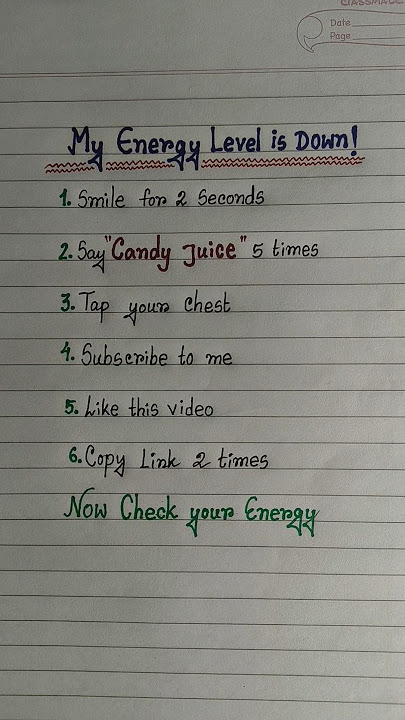 CLASSMATE
Date
Page
My Energy Level is Down!
1. Smile for 2 Seconds
2. Say "Candy Juice" 5 times
3. Tap your Chest
4. Subscribe to me
5. Like this video
6. Copy Link 2 times
Now Check your Energy